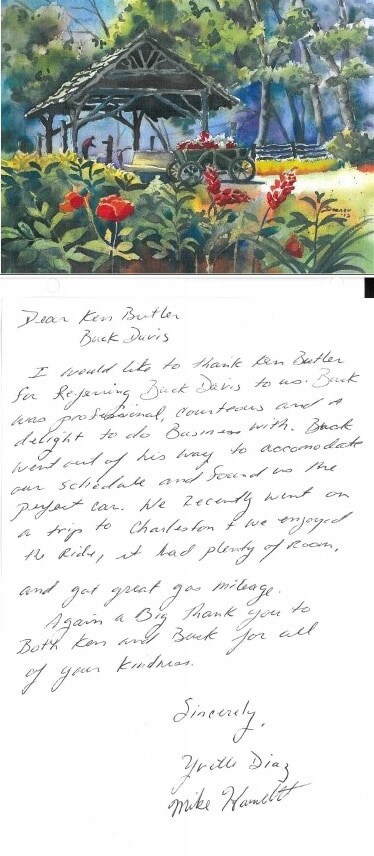 Dear Ken Butler
Buck Davis
I would like to thank Ken Butler
for Refering Buck Davis to us. Buck
was professional, courteous and a
delight to do Business with. Buck
went out of his way to accomodate
our schedule and found us the
perfect car. We Recently went on
a trip to Charleston & we enjoyed
the Ride, it had plenty of Room,
and got great gas mileage.
Again a Big Thank you to
Both Ken and Buck for all
of your kindness.
Sincerely,
Yvette Diaz